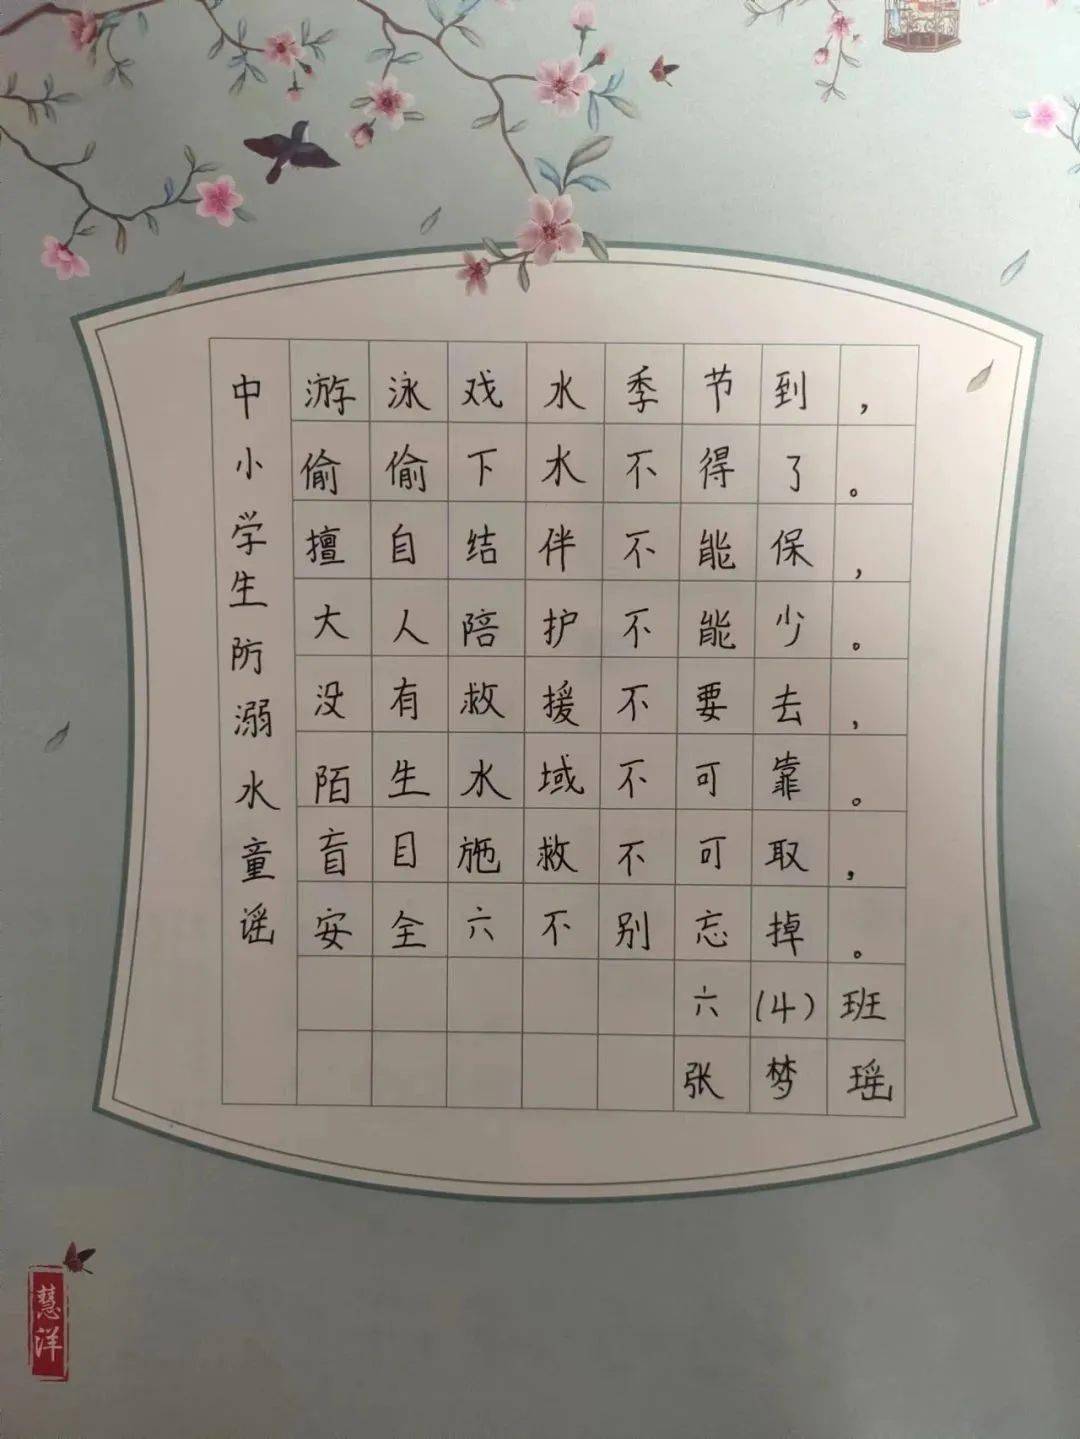 中小学生防溺水童谣
游泳戏水季节到，
偷偷下水不得了。
擅自结伴不能保，
大人陪护不能少。
没有救援不要去，
陌生水域不可靠。
盲目施救不可取，
安全六不别忘掉。
六(4)班
张梦瑶
慧洋